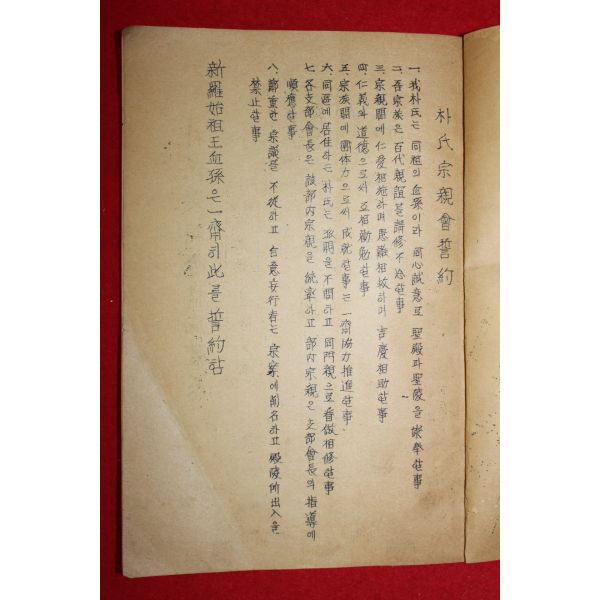 朴氏宗親會誓約
一、我朴氏는 同祖의 血孫이라 同心誠意로 聖殿과 聖陵을 崇奉할事
二、吾宗族은 百代親誼를 講修不怠할事
三、宗親間에 仁愛相施하며 患難相救하며 吉慶相助할事
四、仁義와 道德으로써 互相勸勉할事
五、宗族間에 團体力으로써 成就할事는 一齊協力推進할事
六、同區에 居住하는 朴氏는 派別을 不問하고 同門親으로 看做相修할事
七、各支部會長은 該部內宗親을 統率하고 部內宗親은 支部會長의 指導에
順應할事
八、鄭重한 宗議를 不從하고 自意妄行者는 宗案에 割名하고 殿陵所出入을
禁止할事
新羅始祖王血孫은 一齊히 此를 誓約함